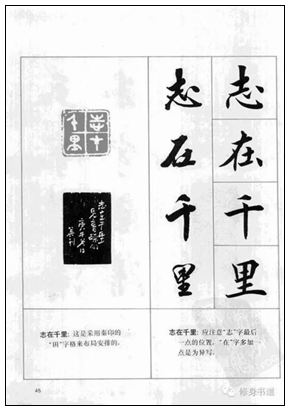 志在千里
志在千里
志在千里：这是采用秦印的
“田”字格来布局安排的。
志在千里：应注意“志”字最后
一点的位置。“在”字多加
点是为异写。
46
修身书道